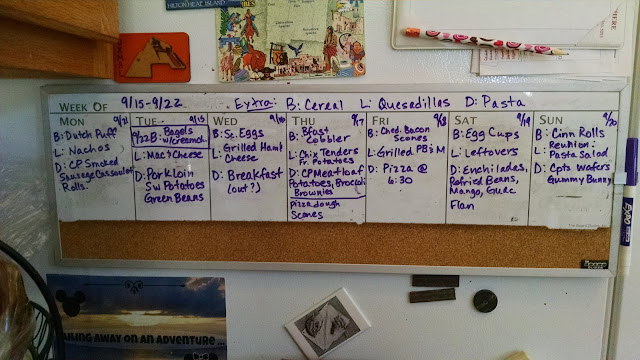 HILTON HEAD ISLAND
WEEK OF 9/15-9/22 . Extra: B: Cereal L: Quesadillas D: Pasta
MON 9/21
B: Dutch Puff
L: Nachos
D: CP Smoked
Sausage
Rolls.
TUE 9/15
9/22 B: Bagels
w/cream
L: Mac+Cheese
D: Pork Loin
Sw Potatoes
Green Beans
WED 9/16
B: Sc. Eggs
L: Grilled Ham+
Cheese
D: Breakfast
(out?)
THU 9/17
B: Bfast
Cobbler
L: Chix Tenders
Fr. Potatoes
D: CP Meatloaf
Potatoes, Broccoli
Brownies
pizza dough
Scones
FRI 9/18
B: Ched. Bacon
Scones
L: Grilled PB+M
D: Pizza @
6:30
SAT 9/19
B: Egg Cups
L: Leftovers
D: Enchiladas,
Refried Beans,
Mango, Guac
Flan
SUN 9/20
B: Cinn Rolls
Reunion:
L: Pasta Salad
D: Cpts Wafers
Gummy Bunny
EXPO
The Board Dudes
AILING AWAY ON AN ADVENTURE ...